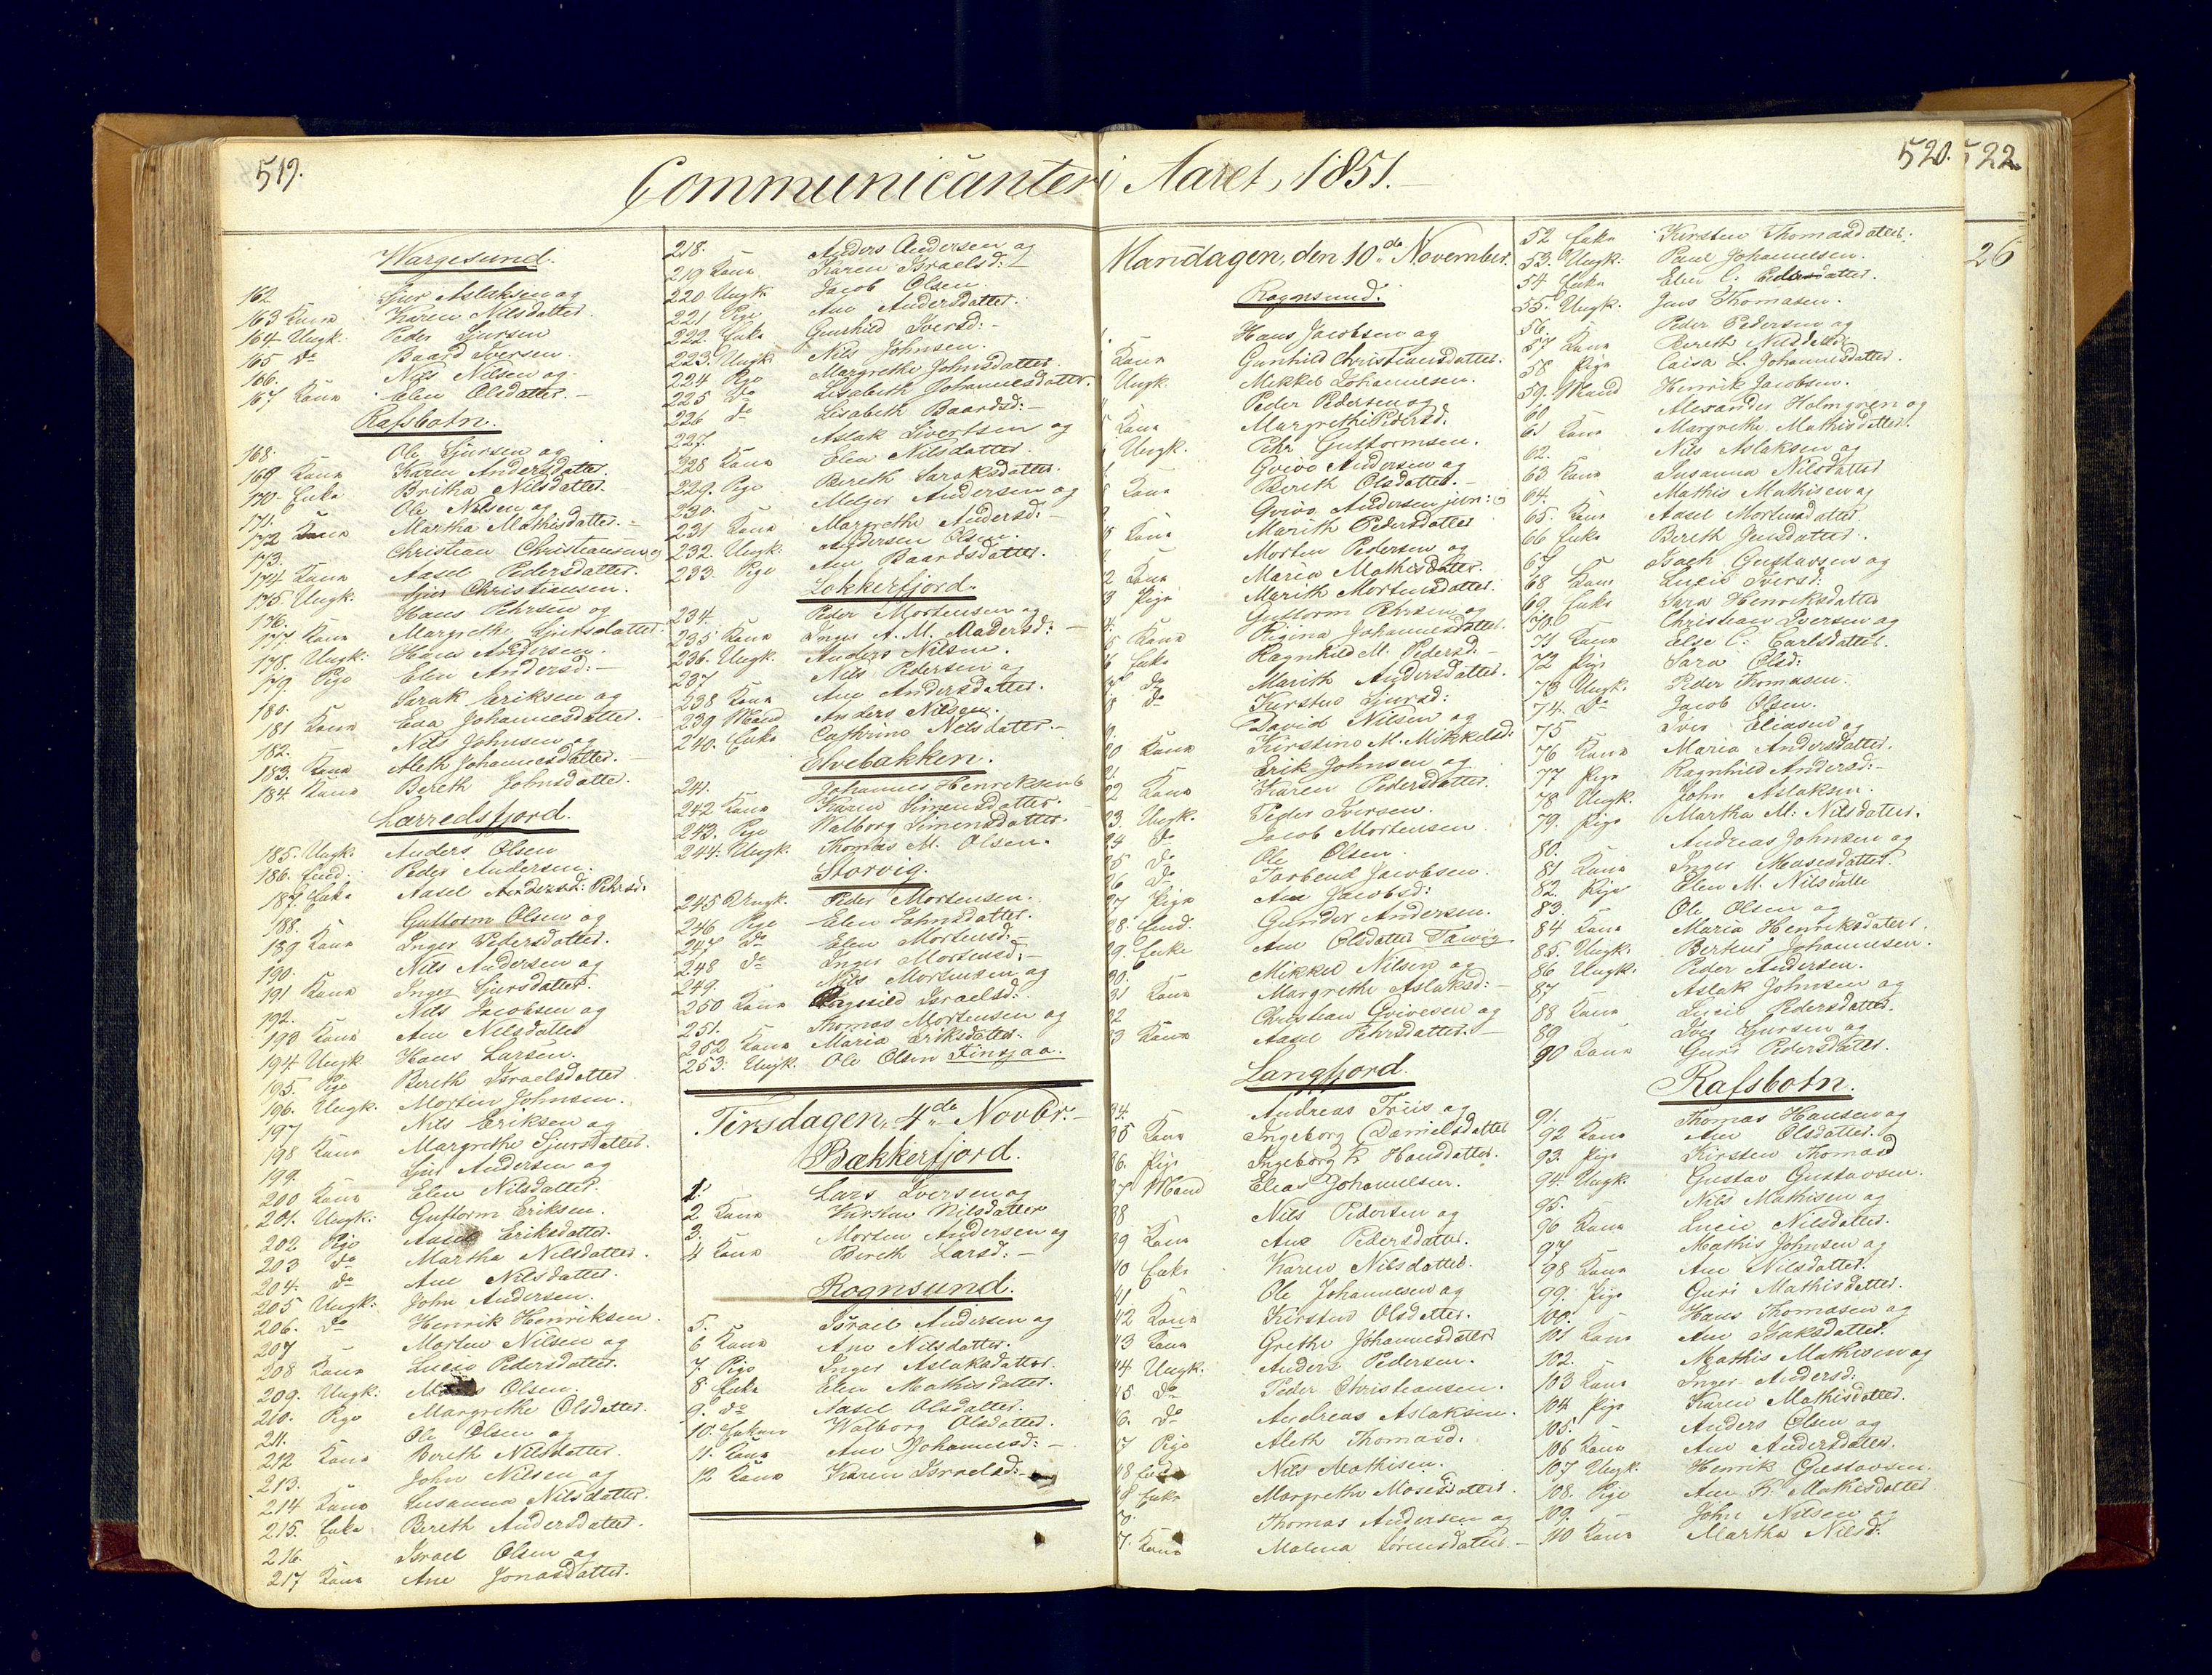 519.
Communicanter i Aaret, 1851.
520.
522.
26
Wargesund.
162. Sjur Aslaksen og
163 Kona Karen Nilsdatter.
164 Ungk. Peder Sjursen
165 do Baard Iversen.
166. Nils Nilsen og
167 Kona Elen Olsdatter.
Rafsbotn.
168. Ole Sjursen og
169 Kona Karen Andersdatter.
170. Enke Britha Nilsdatter.
171. Ole Nilsen og
172 Kona Martha Mathisdatter.
173. Christian Christiansen og
174 Kona Aasel Pedersdatter.
175. Ungk. Sjur Christiansen.
176. Hans Pehrsen og
177 Kona Margrethe Sjursdatter
178. Ungk. Hans Andersen.
179. Pige Elen Andersd:
180. Sarak Eriksen og
181 Kona Eva Johannesdatter.
182. Nils Johnsen og
183. Kona Aleth Johannesdatter.
184 Kona Bereth Johnsdatter.
Lærredsfjord.
185. Ungk. Anders Olsen
186. Peder Andersen.
187. Enke Aasel Andersd: Pehrsd:
188. Guttorm Olsen og
189 Kona Inger Pedersdatter.
190. Nils Andersen og
191 Kona Inger Sjursdatter.
192. Nils Jacobsen og
193 Kona Ane Nilsdatter
194 Ungk Hans Larsen.
195. Pige Bereth Israelsdatter
196. Ungk. Morten Johnsen.
197 Nils Eriksen og
198 Kona Margrethe Sjursdatter.
199. Sjur Andersen og
200 Kona Elen Nilsdatter.
201. Ungk. Guttorm Eriksen.
202 Pige Aasel Eriksdatter.
203 do Martha Nilsdatter.
204. do Ane Nilsdatter.
205 Ungk: John Andersen.
206. do Henrik Henriksen.
207 Morten Nilsen og
208 Kona Lucie Pedersdatter.
209. Ungk: Olsen.
210. Pige Margrethe Olsdatter.
211. Ole Olsen og
212 Kona Bereth Nilsdatter.
213. John Nilsen og
214 Kona Susanna Nilsdatter.
215. Enke Bereth Andersdatter.
216. Israel Olsen og
217 Kona Ane Jonasdatter.
218. Anders Andersen og
219 Kona Karen Israelsd:
220 Ungk. Jacob Olsen.
221 Pige Ane Andersdatter.
222 Enke Gunhild Iversd:
223. Ungk. Nils Johnsen.
224 Pige Margrethe Johnsdatter.
225 do Lisabeth Johannesdatter.
226 do Lisabeth Baardsd:
227. Aslak Sivertsen og
228 Kona Elen Nilsdatter.
229. Pige Bereth Saraksdatter.
230. Andersen og
231 Kona Margrethe Andersd:
232. Ungk: Andersen Olsen.
233. Pige Ane Baardsdatter.
Lokkerfjord.
234. Peder Mortensen og
235 Kona Inger A. M. Madersd:
236. Ungk. Anders Nilsen.
237 Nils Pedersen og
238 Kona Ane Andersdatter.
239 Mand Anders Nilsen.
240. Enke Cathrine Nilsdatter.
Elvebakken.
241. Johannes Henriksen
242 Kona Karen Simensdatter.
243. Pige Walborg Simensdatter.
244. Ungk. Thomas M. Olsen.
Storvig.
245 Ungk. Peder Mortensen.
246 Pige Elen Johnsdatter.
247 do Elen Mortensd:
248 do Inger Mortensd:
249. Nils Mortensen og
250 Kona Israelsd:
251. Thomas Mortensen og
252 Kona Maria Eriksdatter.
253. Ungk. Ole Olsen
Tirsdagen 4de Novbr.
Bækkerfjord.
1. Lars Iversen og
2 Kona Kirsten Nilsdatter
3. Morten Andersen og
4 Kona Bereth Larsd:
Rognsund.
5. Israel Andersen og
6 Kona Ane Nilsdatter.
7. Pige Inger Aslaksdatter.
8 Enke Elen Mathisdatter.
9. do Aasel Olsdatter.
10. Walborg Olsdatter.
11. Kona Ane Johannesd:
12 Kona Karen Israelsd:
Mandagen, den 10de November.
Rognsund.
Hans Jacobsen og
Kona Gunhild Christiansdatter.
Ungk. Mikkel Johannesen.
Peder Pedersen og
Kona Margrethe Pedersd.
Ungk. Pehr Guttormsen.
Gvivo Andersen og
Kona Bereth Olsdatter.
Gvivo Andersen jun: og
Kona Marith Pedersdatter
Morten Pedersen og
2 Kona Maria Mathisdatter.
3 Pige Marith Mortensdatter.
4. Guttorm Pehrsen og
5 Kona Regina Johannesdatter.
6 Enke Ragnhild M. Pedersd:
do Marith Andersdatter.
8 do Kirsten Sjursd:
9. David Nilsen og
20 Kona Kirstine M. Mikkelsd:
21 Erik Johnsen og
22 Kona Karen Pedersdatter.
23. Ungk. Peder Iversen.
24 do Jacob Mortensen
25 do Ole Olsen.
26 do Torbend Jacobsen
27 Pige Ane Jacobsd:
28. Gunder Andersen.
29. Enke Ane Olsdatter Talvig
30. Mikkel Nilsen og
31 Kona Margrethe Aslaksd:
32 Christian Gvivesen og
33 Kona Aasel Pehrsdatter.
Langfjord.
34. Andreas Friis og
35 Kona Ingeborg Danielsdatter
36. Pige Ingeborg K. Hansdatter.
37 Mand Elias Johannesen.
38 Nils Pedersen og
39 Kona Ane Pedersdatter.
40 Enke Karen Nilsdatter.
41 Ole Johannesen og
42 Kona Kirsten Olsdatter.
43 Kona Grethe Johannesdatter
44 Ungk. Anders Pedersen.
45 do Peder Christiansen.
46. do Andreas Aslaksen.
47 Pige Aleth Thomasd:
48 Nils Mathisen.
Enke Margrethe Mosesdatter.
Thomas Andersen og
Kona Malena Sörensdatter.
52 Enke Kirsten Thomasdatter.
53. Ungk. Paul Johannesen.
54 Enke Elen C. Pedersdatter.
55. Ungk. Jens Thomasen.
56. Peder Pedersen og
57 Kona Bereth Nilsdatter
58 Pige Caisa L. Johannesdatter.
59. Mand Henrik Jacobsen.
60 Alexander Holmgren og
61 Kona Margrethe Mathisdatter.
62. Nils Aslaksen og
63 Kona Susanna Nilsdatter
64. Mathis Mathisen og
65. Kona Aasel Mortensdatter.
66 Enke Bereth Jensdatter.
67 Isach Gustavsen og
68 Kona Lucie Iversd:
69. Enke Sara Henriksdatter
70. Christian Iversen og
71 Kona Else C. Carlsdatter.
72 Pige Sara Olsd:
73 Ungk. Peder Thomasen.
74. do Jacob Olsen.
75 Iver Eliasen og
76 Kona Maria Andersdatter.
77 Pige Ragnhild Andersd:
78 Ungk. John Aslaksen.
79. Pige Martha M. Nilsdatter.
80. Andreas Johnsen og
81 Kona Inger Mosesdatter.
82. Pige Elen M. Nilsdatter
83. Ole Olsen og
84 Kona Maria Henriksdatter.
85. Ungk. Berteus Johannesen.
86 Ungk. Peder Andersen.
87 Aslak Johnsen og
88 Kona Lucie Pedersdatter.
89 Iver Sjursen og
90 Kona Guri Pedersdatter.
Rafsbotn.
91. Thomas Hansen og
92 Kona Ane Olsdatter.
93. Pige Kirsten Thomasd
94 Ungk. Gustav Gustavsen.
95. Nils Mathisen og
96 Kona Lucie Nilsdatter.
97 Mathis Johnsen og
98 Kona Ane Nilsdatter.
99. Pige Guri Mathisdatter.
100. Hans Thomasen og
101 Kona Ane Isaksdatter.
102. Mathis Mathisen og
103 Kona Inger Andersd:
104 Pige Karen Mathisdatter.
105. Anders Olsen og
106 Kona Ane Andersdatter.
107 Ungk. Henrik Gustavsen.
108. Pige Ane K. Mathisdatter
109. John Nilsen og
110 Kona Martha Nilsd: